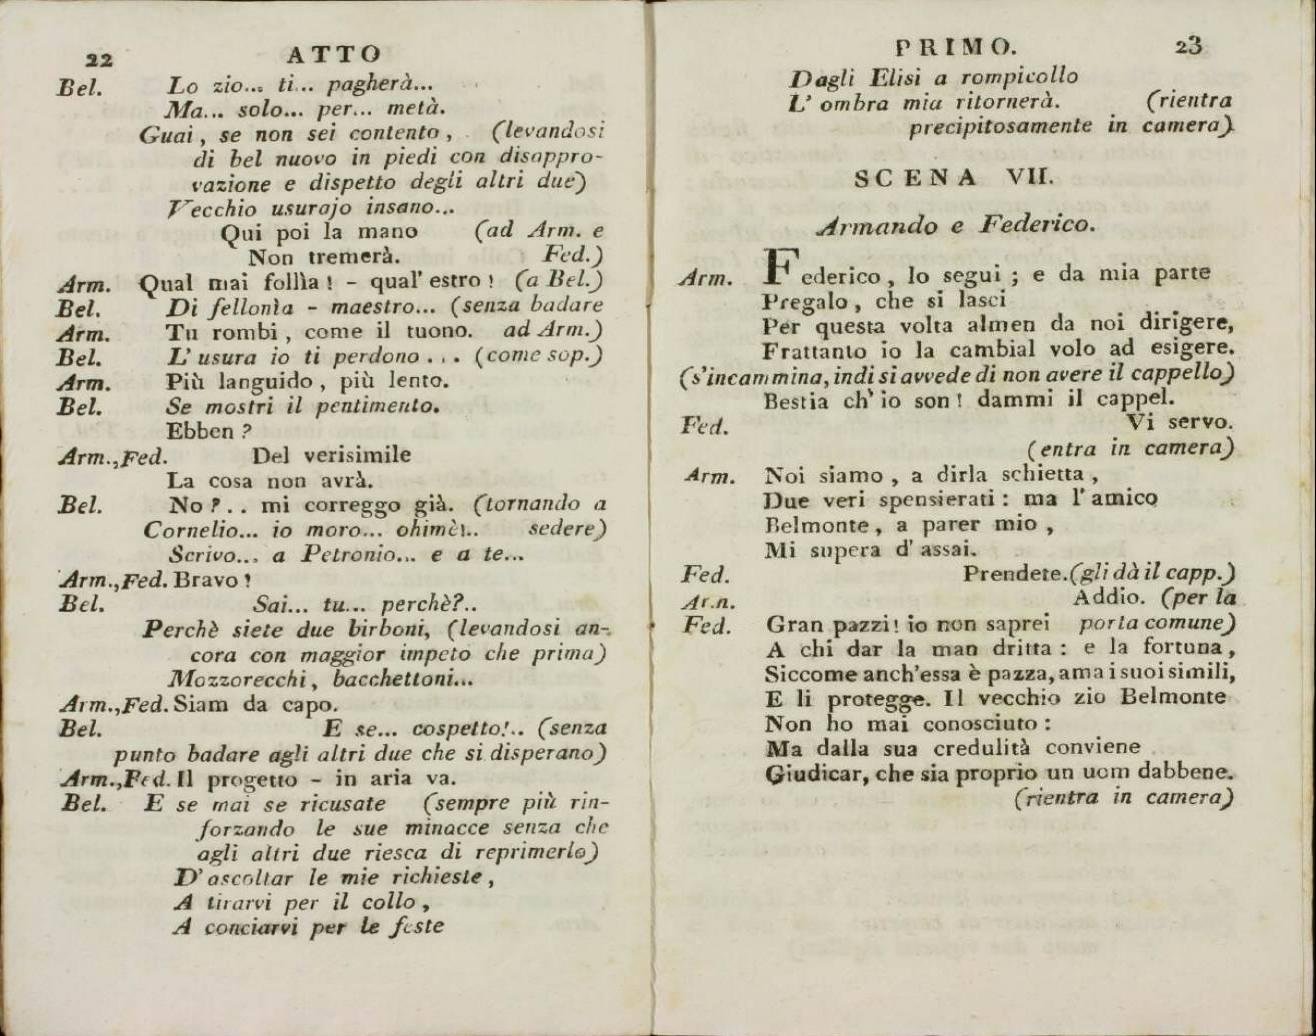 22 ATTO
Bel. Lo zio... ti... pagherà...
Ma... solo... per... metà.
Guai, se non sei contento, (levandosi
di bel nuovo in piedi con disappro-
vazione e dispetto degli altri due)
Vecchio usurajo insano...
Qui poi la mano (ad Arm. e
Non tremerà. Fed.)
Arm. Qual mai follìa! - qual' estro! (a Bel.)
Bel. Di fellonìa - maestro... (senza badare
Arm. Tu rombi, come il tuono. ad Arm.)
Bel. L' usura io ti perdono... (come sop.)
Arm. Più languido, più lento.
Bel. Se mostri il pentimento.
Ebben?
Arm., Fed. Del verisimile
La cosa non avrà.
Bel. No?.. mi correggo già. (tornando a
Cornelio... io moro... ohimè!.. sedere)
Scrivo... a Petronio... e a te...
Arm., Fed. Bravo!
Bel. Sai... tu... perchè?..
Perchè siete due birboni, (levandosi an-
cora con maggior impeto che prima)
Mozzorecchi, bacchettoni...
Arm., Fed. Siam da capo.
Bel. E se... cospetto!.. (senza
punto badare agli altri due che si disperano)
Arm., Fed. Il progetto - in aria va.
Bel. E se mai se ricusate (sempre più rin-
forzando le sue minacce senza che
agli altri due riesca di reprimerlo)
D' ascoltar le mie richieste,
A tirarvi per il collo,
A conciarvi per le feste
PRIMO. 23
Dagli Elisi a rompicollo
L' ombra mia ritornerà. (rientra
precipitosamente in camera)
SCENA VII.
Armando e Federico.
Arm. Federico, lo segui; e da mia parte
Pregalo, che si lasci
Per questa volta almen da noi dirigere,
Frattanto io la cambial volo ad esigere.
(s'incammina, indi si avvede di non avere il cappello)
Bestia ch' io son! dammi il cappel.
Fed. Vi servo.
(entra in camera)
Arm. Noi siamo, a dirla schietta,
Due veri spensierati: ma l' amico
Belmonte, a parer mio,
Mi supera d' assai.
Fed. Prendete. (gli dà il capp.)
Arm. Addio. (per la
Fed. Gran pazzi! io non saprei porta comune)
A chi dar la man dritta: e la fortuna,
Siccome anch'essa è pazza, ama i suoi simili,
E li protegge. Il vecchio zio Belmonte
Non ho mai conosciuto:
Ma dalla sua credulità conviene
Giudicar, che sia proprio un uom dabbene.
(rientra in camera)